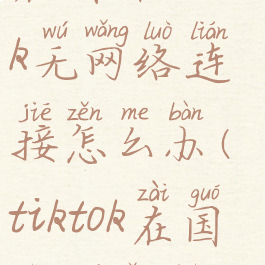 wú wǎng luò lián
k无网络连
jiē zěn me bàn
接怎么办(
zài guó
tiktok在国